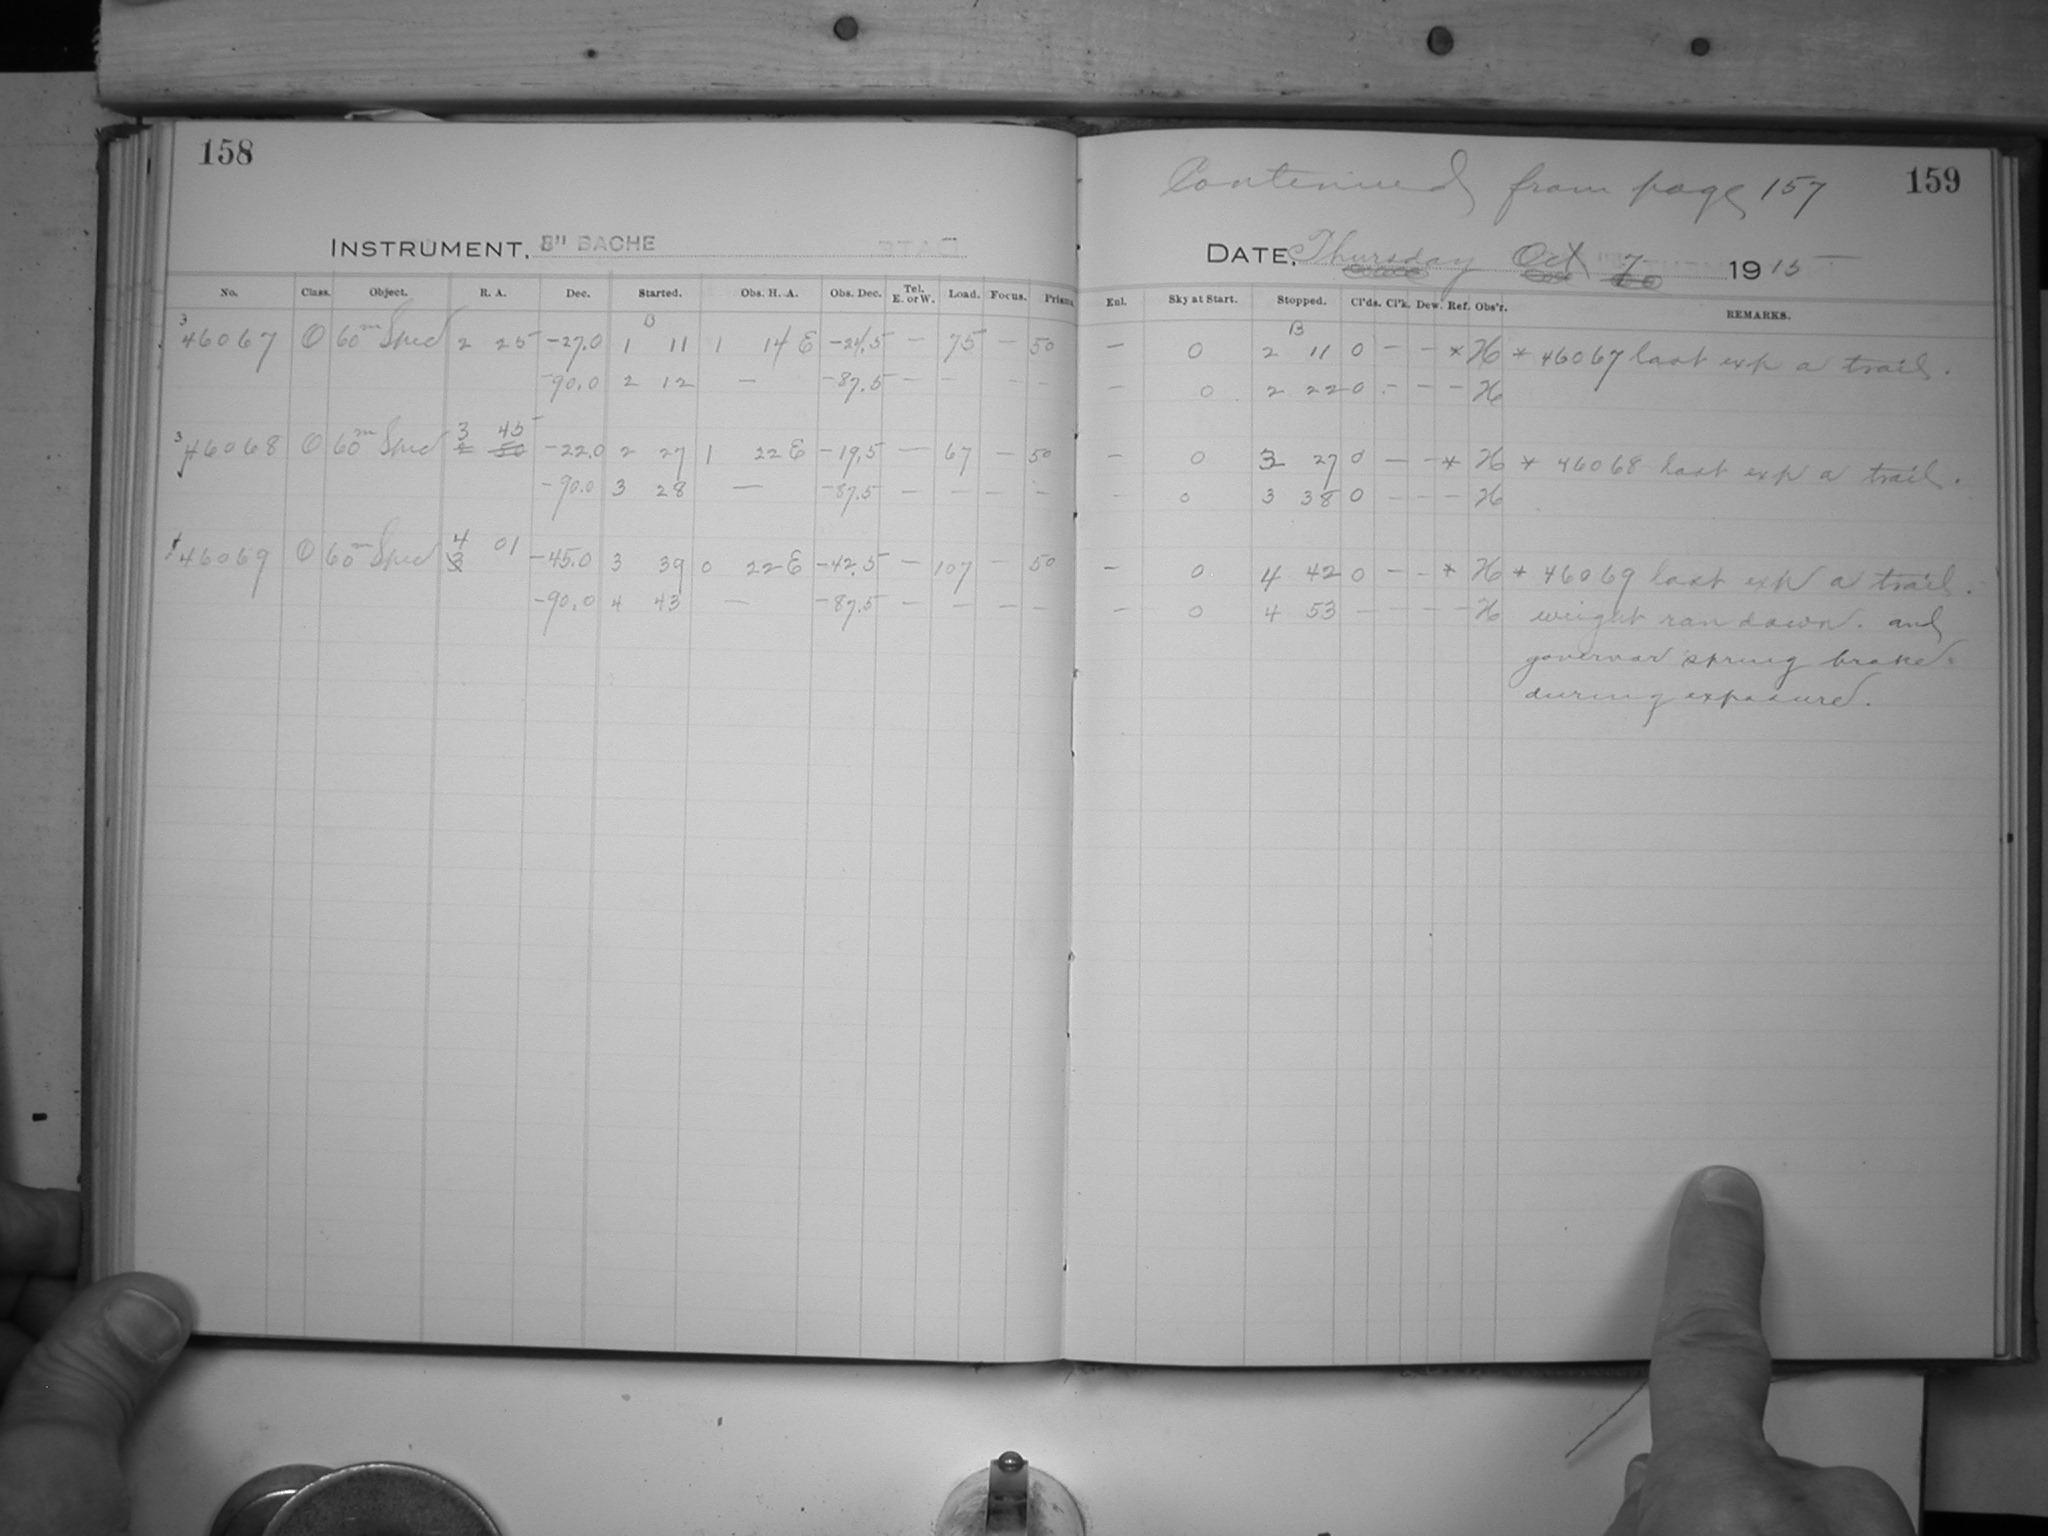 158
INSTRUMENT. 8" BACHE
No. Class. Object. R. A. Dec. Started. Obs. H. A. Obs. Dec. Tel. E. or W. Load. Focus. Prisms
B
3 46067 O 60m Spec 2 25 -27.0 1 11 1 14 E -24.5 — 75 — 50
-90.0 2 12 — -87.5 — — — —
3 45
3 46068 O 60m Spec -22.0 2 27 1 22 E -19.5 — 67 — 50
-90.0 3 28 — -87.5 — — — —
4 01
46069 O 60m Spec 3 -45.0 3 39 0 22 E -42.5 — 107 — 50
-90.0 4 43 — -87.5 — — — —
Continued from page 157
159
DATE, Thursday Oct 7 1915
Enl. Sky at Start. Stopped. Cl'ds. Cl'k. Dew. Ref. Obs'r. REMARKS.
B
— 0 2 11 0 - - * H * 46067 last exp a trail.
— 0 2 22 0 - - - H
— 0 3 27 0 — - * H * 46068 last exp a trail.
- 0 3 38 0 - - - H
— 0 4 42 0 - - * H * 46069 last exp a trail.
— 0 4 53 - - - - H weight ran down. and
governor spring broke.
during exposure.